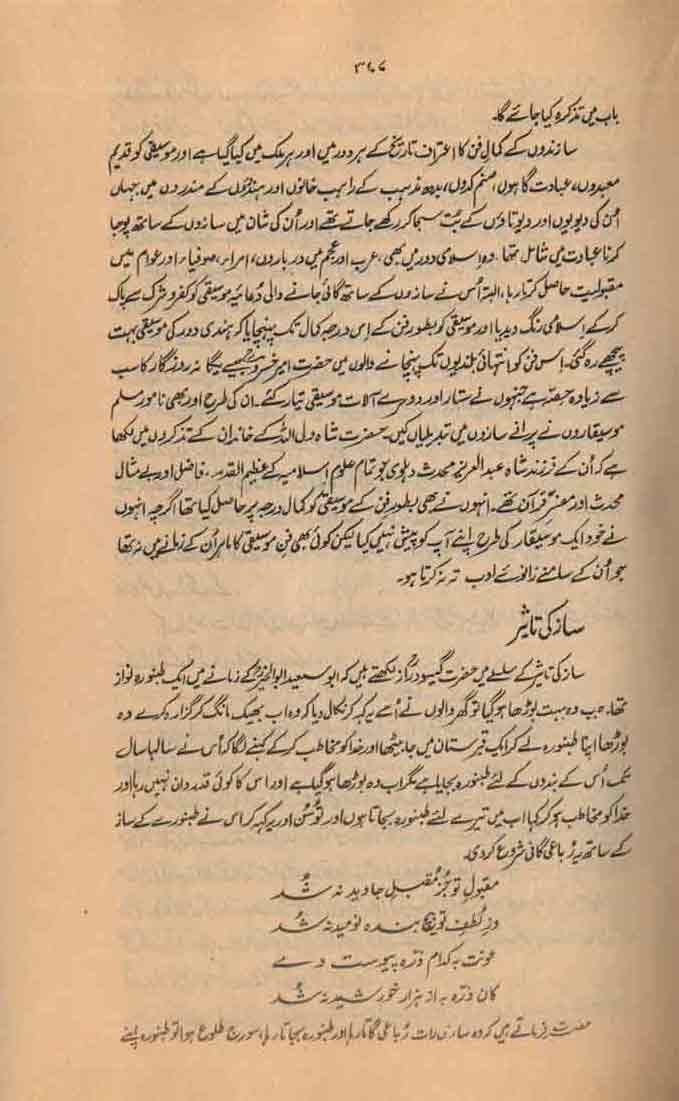 ۳۶۷
باب میں تذکرہ کیا جائے گا۔
سازندوں کے کمالِ فن کا اعتراف تاریخ کے ہر دور میں اور ہر ملک میں کیا گیا ہے اور موسیقی کو قدیم
معبدوں، عبادت گاہوں، صنم کدوں، بدھ مذہب کے راہب خانوں اور ہندوؤں کے مندروں میں جہاں
اُن کی دیویوں اور دیوتاؤں کے بُت سجا کر رکھے جاتے تھے اور اُن کی شان میں سازوں کے ساتھ پوجا
کرنا عبادت میں شامل تھا۔ وہ اسلامی دور میں بھی، عرب اور عجم میں درباروں، امراء، صوفیاء اور عوام میں
مقبولیت حاصل کرتا رہا، البتہ اُس نے سازوں کے ساتھ گائی جانے والی دُعائیہ موسیقی کو کفر و شرک سے پاک
کر کے اسلامی رنگ دیدیا اور موسیقی کو بطور فن کے اِس درجہ کمال تک پہنچایا کہ ہندی دور کی موسیقی بہت
پیچھے رہ گئی۔ اِس فن کو انتہائی بلندیوں تک پہنچانے والوں میں حضرت امیر خسروؒ جیسے یگانہ روزگار کا سب
سے زیادہ حصّہ ہے جنہوں نے ستار اور دوسرے آلات موسیقی تیار کئے۔ ان کی طرح اور بھی نامور مسلم
موسیقاروں نے پرانے سازوں میں تبدیلیاں کیں۔ حضرت شاہ ولی اللہؒ کے خاندان کے تذکروں میں لکھا
ہے کہ اُن کے فرزند شاہ عبدالعزیز محدث دہلوی جو تمام علوم اسلامیہ کے عظیم القدر، فاضل اور بے مثال
محدث اور مفسرِ قرآن تھے۔ انہوں نے بھی بطور فن کے موسیقی کو کمال درجہ پر حاصل کیا تھا اگرچہ انہوں
نے خود ایک موسیقار کی طرح اپنے آپ کو پیش نہیں کیا لیکن کوئی بھی فنِ موسیقی کا ماہر اُن کے زمانے میں نہ تھا
جو اُن کے سامنے زانوئے ادب تہ نہ کرتا ہو۔
ساز کی تاثیر
ساز کی تاثیر کے سلسلے میں حضرت گیسو درازؒ لکھتے ہیں کہ ابو سعید ابوالخیرؒ کے زمانے میں ایک طنبورہ نواز
تھا۔ جب وہ بہت بوڑھا ہو گیا تو گھر والوں نے اُسے یہ کہہ کر نکال دیا کہ وہ اب بھیک مانگ کر گزارہ کرے وہ
بوڑھا اپنا طنبورہ لے کر ایک قبرستان میں جا بیٹھا اور خدا کو مخاطب کر کے کہنے لگا کہ اُس نے سالہا سال
تک اُس کے بندوں کے لئے طنبورہ بجایا ہے مگر اب وہ بوڑھا ہو گیا ہے اور اس کا کوئی قدردان نہیں رہا اور
خدا کو مخاطب ہو کر کہا اب میں تیرے لئے طنبورہ بجاتا ہوں اور تُو سُن اور یہ کہہ کر اس نے طنبورے کے ساز
کے ساتھ یہ رُباعی گانی شروع کر دی۔
مقبولِ تو جُز مُقبلِ جاوید نہ شُد
وز لُطفِ تو ہیچ بندہ نومید نہ شُد
عونت بہ کدام ذرّہ پیوست دمے
کان ذرّہ بہ از ہزار خورشید نہ شُد
حضرت فرماتے ہیں کہ وہ ساری رات رُباعی گاتا رہا اور طنبورہ بجاتا رہا، سورج طلوع ہوا تو طنبورہ اپنے